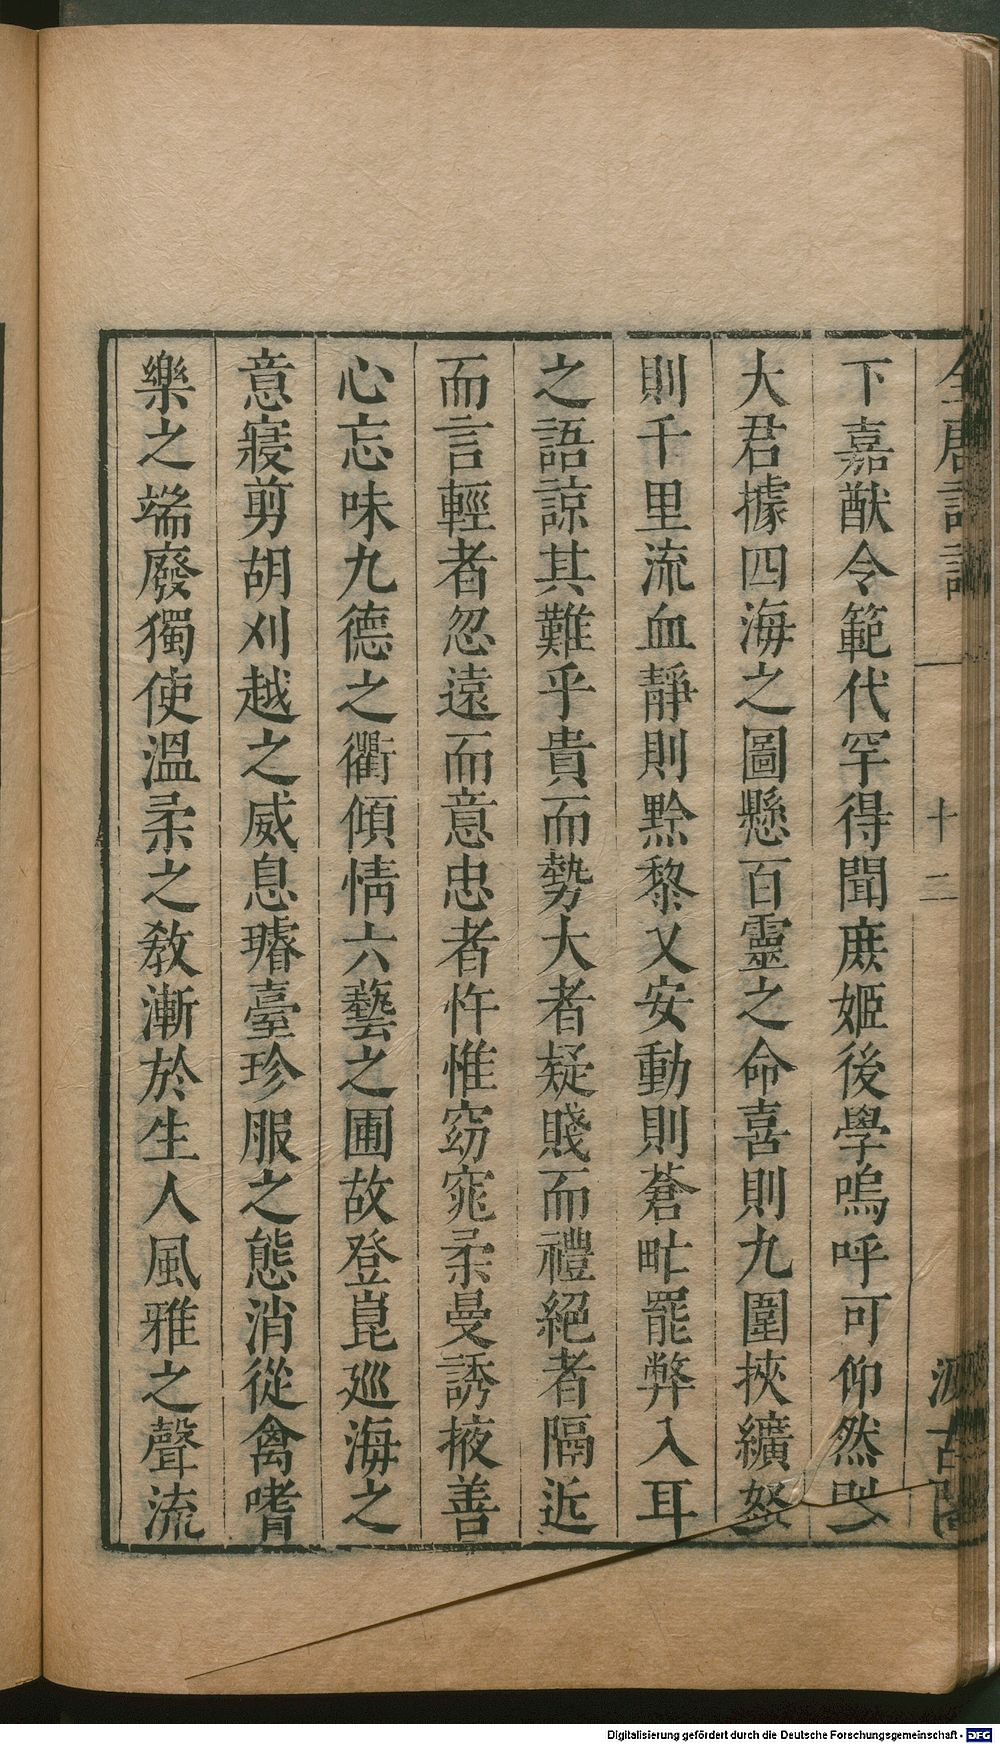 全唐詩話 一 十二 汲古閣
下嘉猷令範代罕得聞庶姬後學嗚呼可仰然則
大君據四海之圖懸百靈之命喜則九圍挾纊怒
則千里流血靜則黔黎乂安動則蒼甿罷弊入耳
之語諒其難乎貴而勢大者疑賤而禮絕者隔近
而言輕者忽遠而意忠者忤惟窈窕柔曼誘掖善
心忘味九德之衢傾情六藝之圃故登崑廵海之
意寢剪胡刈越之威息璿臺珍服之態消從禽嗜
樂之端廢獨使溫柔之教漸於生人風雅之聲流
Digitalisierung gefördert durch die Deutsche Forschungsgemeinschaft - DFG